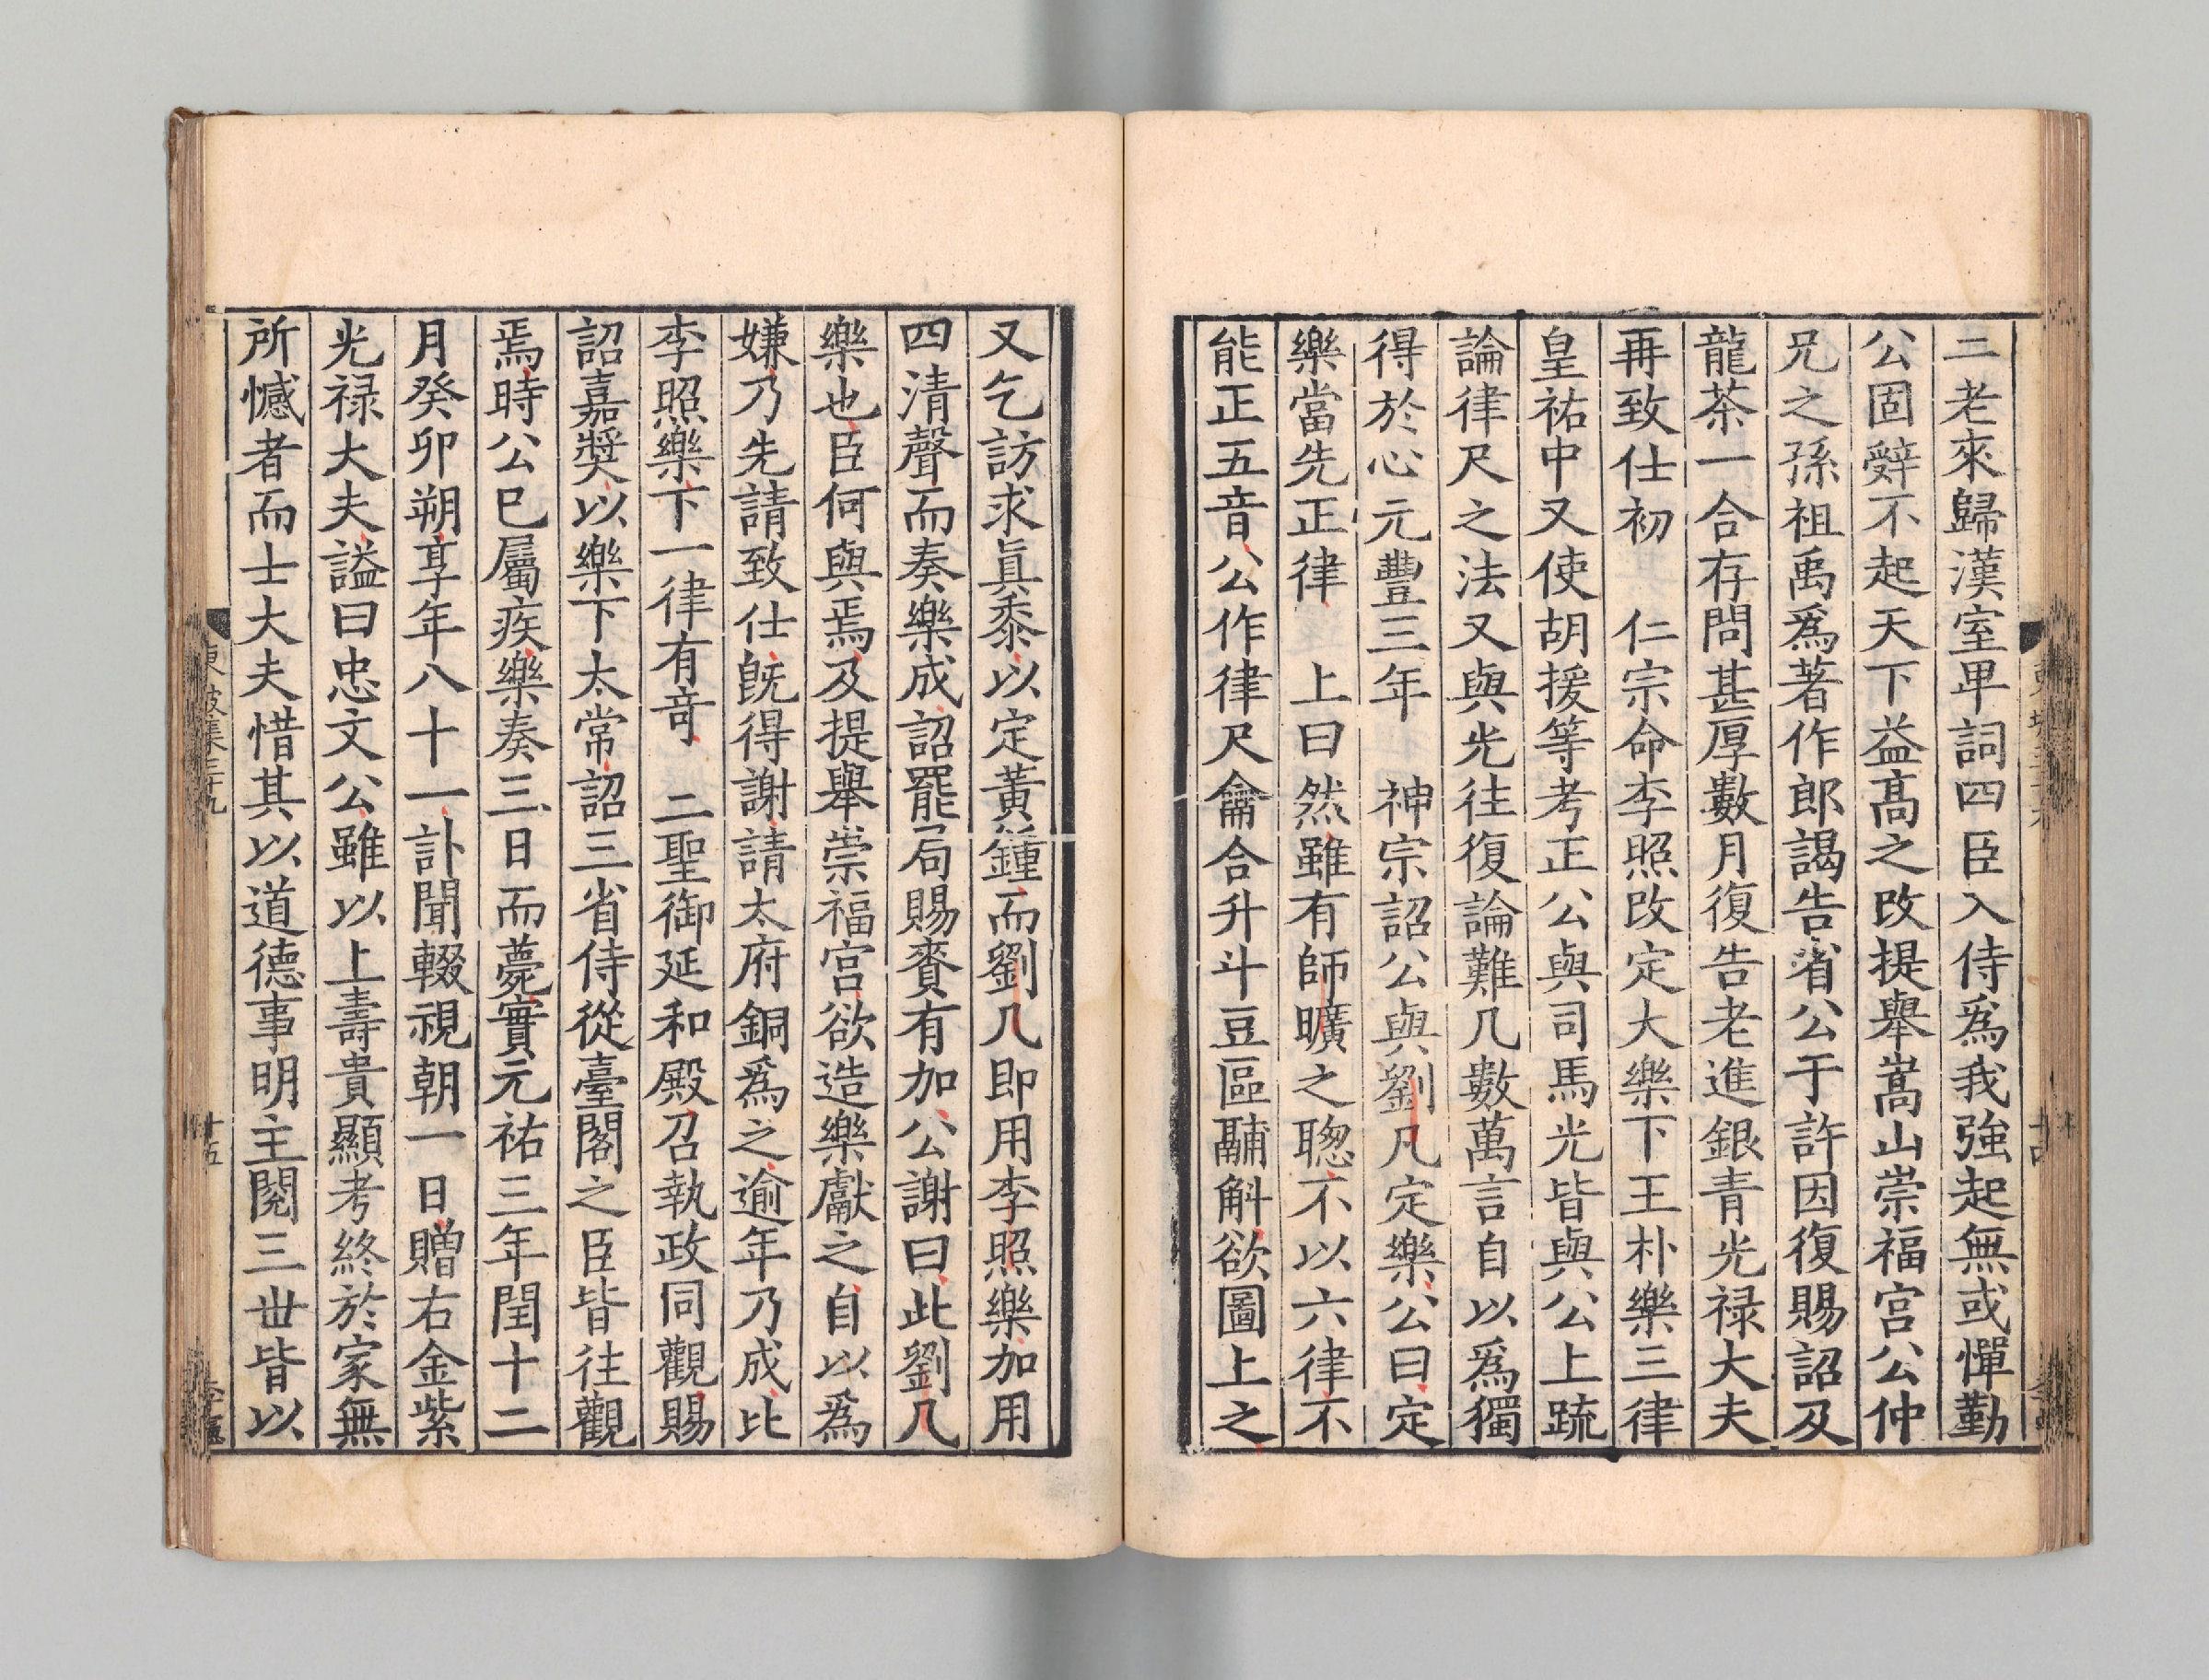 二老來歸漢室卑詞四臣入侍爲我強起無或憚勤
公固辤不起天下益高之改提舉嵩山崇福宫公仲
兄之孫祖禹爲著作郎謁告省公于許因復賜詔及
龍茶一合存問甚厚數月復告老進銀青光禄大夫
再致仕初　仁宗命李照改定大樂下王朴樂三律
皇祐中又使胡援等考正公與司馬光皆與公上䟽
論律尺之法又與光往復論難凡數萬言自以爲獨
得於心元豐三年　神宗詔公與劉凡定樂公曰定
樂當先正律　上曰然雖有師曠之聦不以六律不
能正五音公作律尺龠合升斗豆區鬴斛欲圖上之
又乞訪求眞黍以定黃鍾而劉几即用李照樂加用
四清聲而奏樂成詔罷局賜賚有加公謝曰此劉几
樂也臣何與焉及提舉崇福宫欲造樂獻之自以爲
嫌乃先請致仕旣得謝請太府銅爲之逾年乃成比
李照樂下一律有竒　二聖御延和殿召執政同觀賜
詔嘉獎以樂下太常詔三省侍從臺閣之臣皆往觀
焉時公已屬疾樂奏三日而薨實元祐三年閏十二
月癸卯朔享年八十一訃聞輟視朝一日贈右金紫
光禄大夫謚曰忠文公雖以上壽貴顯考終於家無
所憾者而士大夫惜其以道德事明主閱三世皆以
東坡集三十九
十五